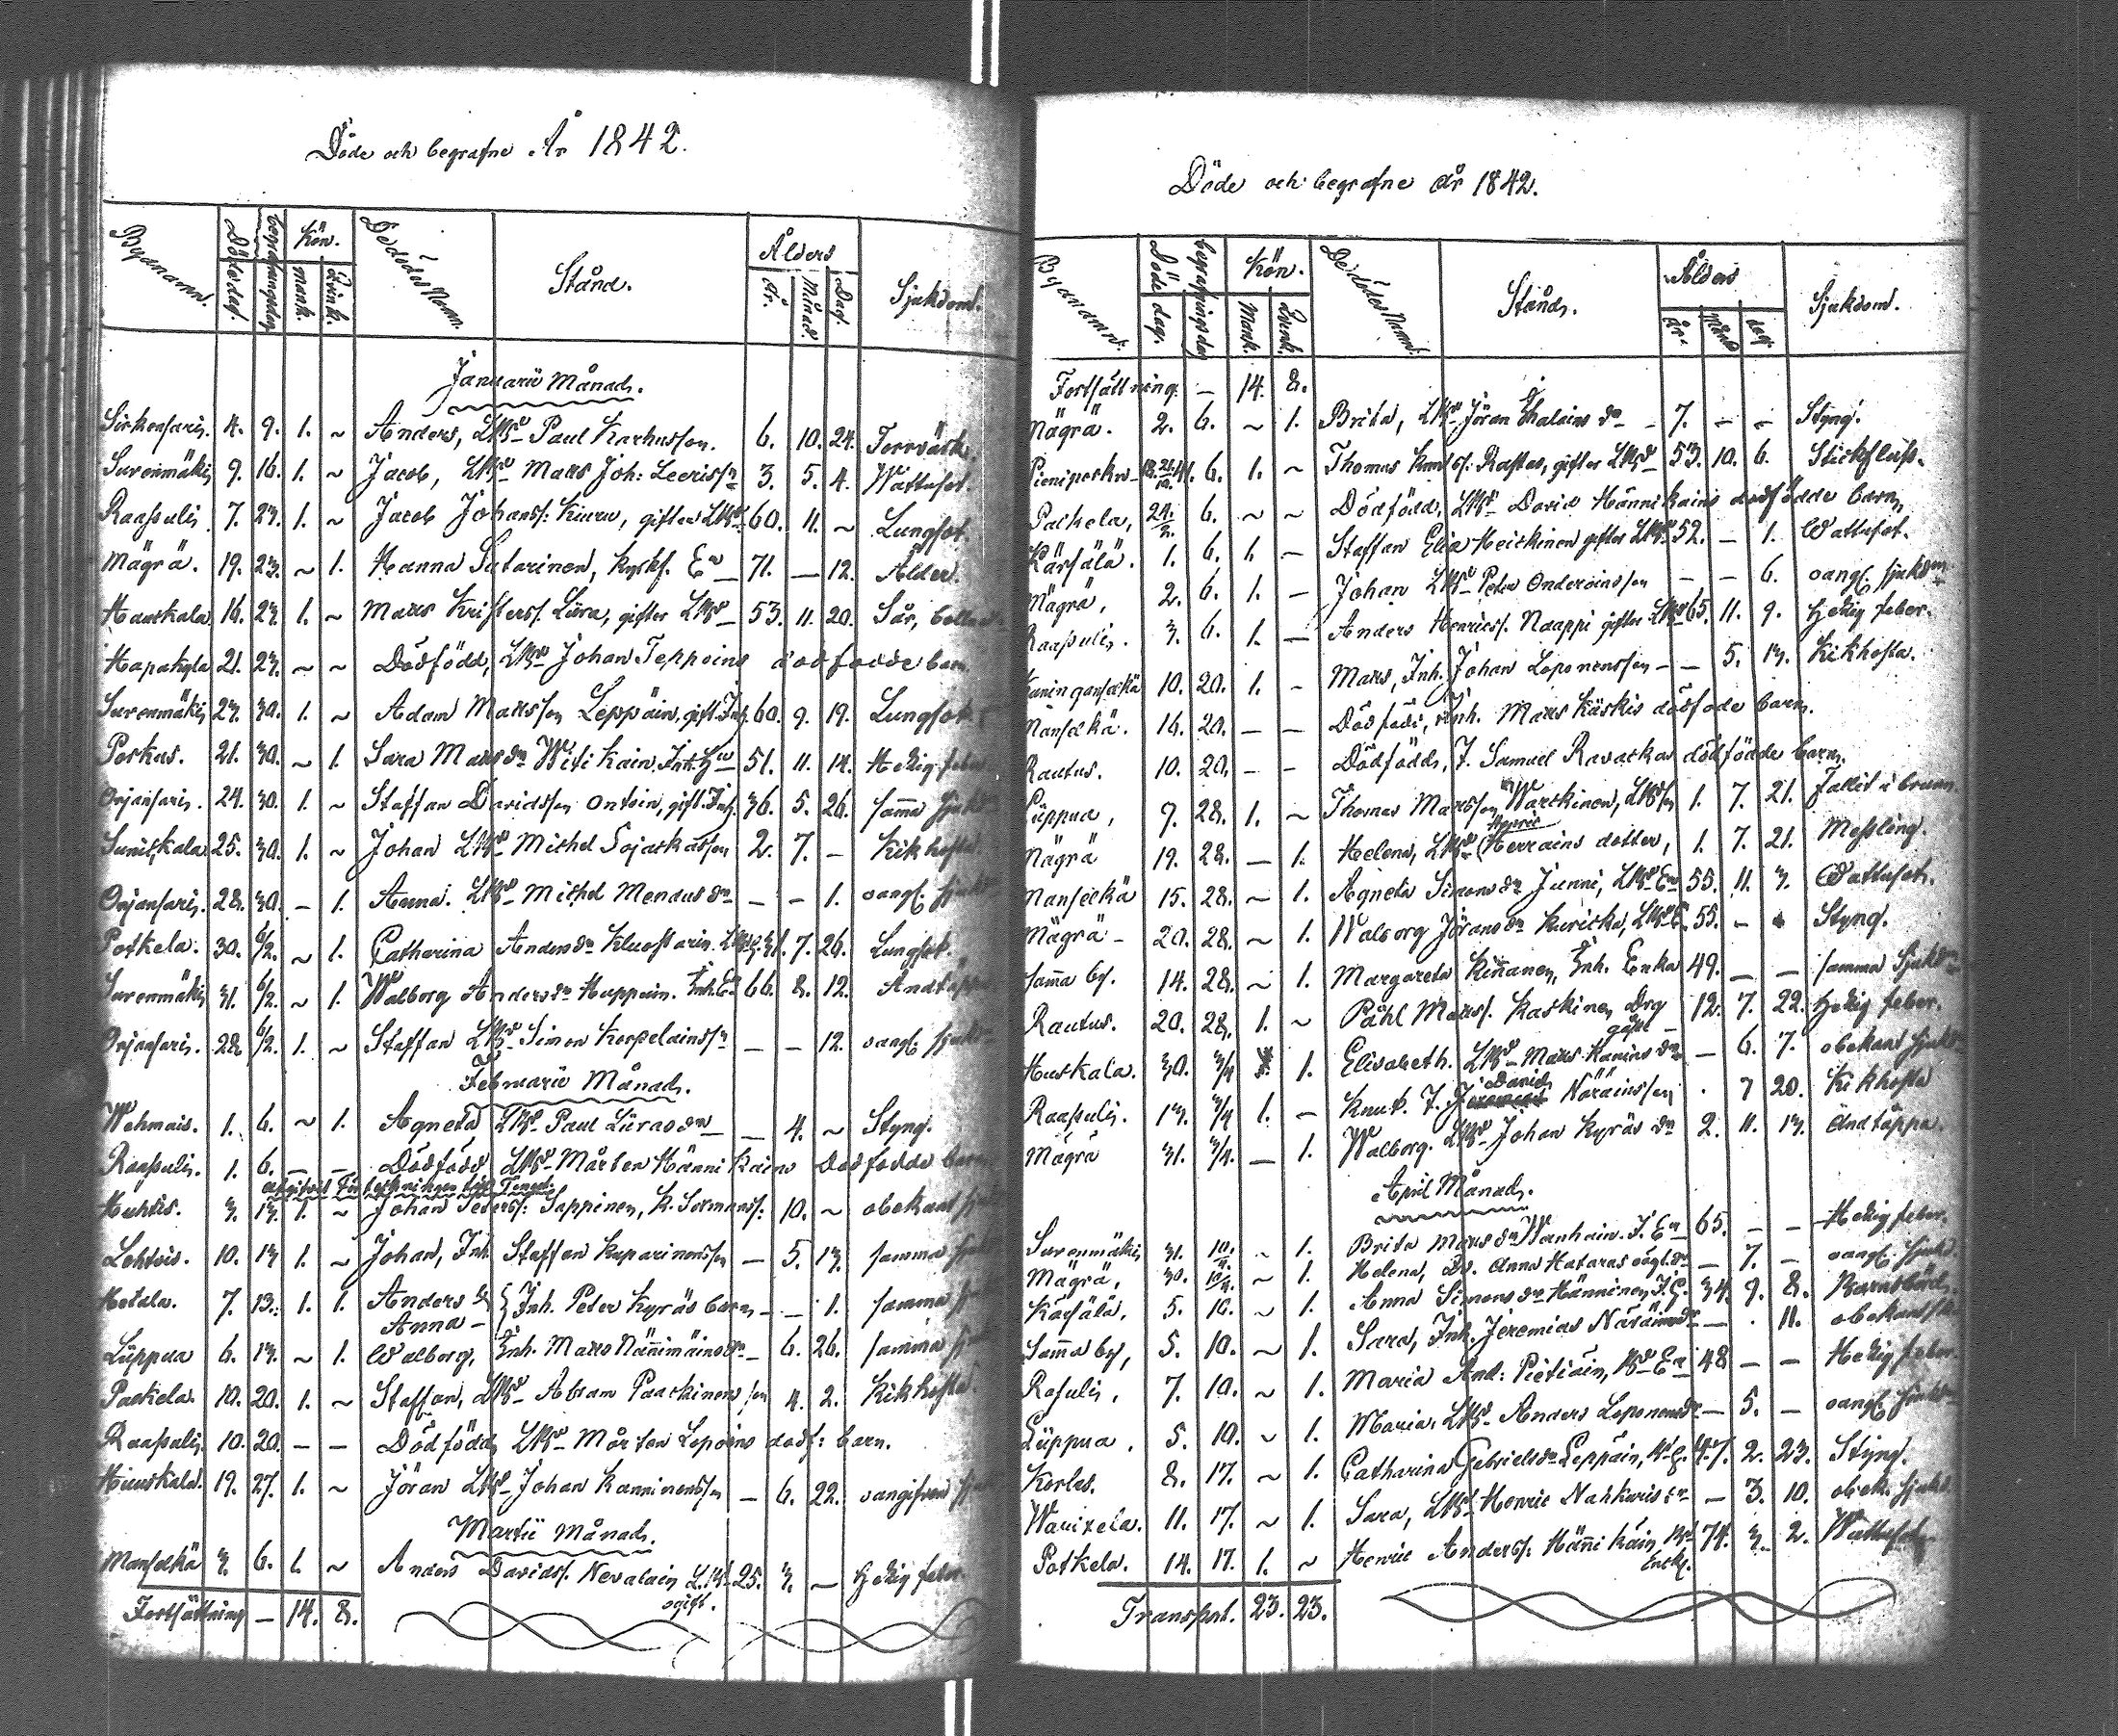 Döde och begrafne År 1842.
Byanamn. Döde dag. begrafningsdag Kön. mank. Qvink. De dödes Namn. Stånd. Ålders År. Månad. Dag. Sjukdom.
Januarii Månad.
Sirkensaris. 4. 9. 1. ~ Anders, Paul Karhusson. 6. 10. 24. Torrvärk.
Surenmäki 9. 16. 1. ~ Jacob, Matts Joh: 3. 5. 4. Wattusot.
Raasuli. 7. 23. 1. ~ Jacob Johans: Kiuru, gifter 60. 11. ~ Lungsot.
Mägrä. 19. 23. ~ 1. Hanna Sutarinen, Kyrkf. En 71. — 12. Ålder.
Haukala 16. 23. 1. ~ Matts Kristers: Liira, gifter 53. 11. 20. Sår,
Hapakyla 21. 23. ~ ~ Dödfödd, Johan Teppoins dödfödde barn.
Surenmäki 23. 30. 1. ~ Adam Mattsson Leppäin, gift. Inh. 60. 9. 19. Lungsot.
Porkus. 21. 30. ~ 1. Sara Matsdr Witikain, Inh. 51. 11. 14. Hetzig feber
Orjansaris. 24. 30. 1. ~ Staffan Davidsson Ontoin, gift. Inh. 36. 5. 26. samma
Suniskala 25. 30. 1. ~ Johan Michel Sojackasson 2. 7. — Kikhosta.
Orjansaris. 28. 30. — 1. Anna. Michel Mendus dr — — 1. oangf. sjukd
Potkela. 30. 6/2. ~ 1. Catharina Anders dr 31. 7. 26. Lungsot.
Surenmäki 31. 6/2. ~ 1. Walborg Anders dr Huppoin. Inh. En 66. 8. 12. Andtäppa
Orjansaris. 28. 6/2. 1. ~ Staffan Simon Korpelainssn — — 12. oangf. sjukd
Februarii Månad.
Wehmais. 1. 6. ~ 1. Agneta Paul Liiras dr — — 4. ~ Styng.
Raasulis. 1. 6. — — Dödfödd Mårten Hännikains dödfödde barn
Huhtis. 3. 13. 1. ~ Johan Peters: Sappinen, 10. ~ obekant
Lehtois. 10. 13. 1. ~ Johan, Inh. Staffan Kaparinensson — 5. 13. samma
Hotala. 7. 13. 1. 1. Anders & Anna — Inh. Peter Kyräs barn — — 1. samma
Lüppua 6. 13. ~ 1. Walborg, Inh. Matts Nänimäins dr — 6. 26. samma
Paskela. 10. 20. 1. ~ Staffan, Abram Paaskinens son 4. 2. Kikhosta
Raasulis. 10. 20. — — Dödfödd Mårten Lopoins dödf: barn.
Huuskala. 19. 27. 1. ~ Jöran Johan Kanninensson — 6. 22. oangifven
Martii Månad.
Manselkä 3. 6. 1. ~ Anders Davids: Nevalain ogift. 25. 3. — Hetzig feber
Fortsättning — 14. 8.
Döde och begrafne år 1842.
Byanamn. Döde dag. begrafningsdag Kön. Mank. Qvink. De dödes Namn. Stånd. Ålders år. Månad dag. Sjukdom.
Fortsättning. — 14. 8.
Mägrä. 2. 6. ~ 1. Brita, Jöran dr — 7. — — Styng.
Thomas gifter 53. 10. 6. Stickfluss.
Paskela, 24/2. 6. ~ ~ Dödfödd, David Hännikains dödfödde barn,
Kärsälä. 1. 6. 1. — Staffan Elia Heickinen gifter 52. — 1. Wattusot.
Mägrä, 2. 6. 1. — Johan Peter Onderoinsson — — 6. oangf. sjukdm
Raasulis. 3. 6. 1. — Anders Henrics: Naappi gifter 65. 11. 9. hetzig feber.
10. 20. 1. ~ Matts, Inh. Johan Loponensson — — 5. 13. Kikhosta.
Manselkä. 16. 20. — — Dödfödd, Inh. Matts Käskis dödföde barn.
Rautus. 10. 20. — — Dödfödd, I. Samuel Ravackas dödfödde barn.
Lüppua, 9. 28. 1. ~ Thomas Mattsson Warckinen, 1. 7. 21. fallit i brunn.
Mägrä 19. 28. — 1. Helena, Herrains dotter, 1. 7. 21. Messling.
Manselkä 15. 28. ~ 1. Agneta Simons dr Junni, En 55. 11. 3. Wattusot.
Mägrä — 20. 28. ~ 1. Walborg Jörans dr Kuricka, 55. — Styng.
Samma by. 14. 28. ~ 1. Margareta Kinnanen, Inh. Enka 49. — — samma Sjukdm
Rautus. 20. 28. 1. ~ Påhl Matts: Kaskinen Drg 12. 7. 22. hetzig feber.
Huskala. 30. 3/4 1. Elisabeth. Matts Kanins dr — 6. 7. obekant sjukd
Raasulis. 13. 3/4 1. — Knut. I. David Näräinsson 7 20. Kikhosta
Mägrä 31. 3/4. — 1. Walborg. Johan Kyräs dr 2. 11. 13. Andtäppa.
April Månad.
Surenmäki 31. 10/4. ~ 1. Brita Matts dr Wanhain. I. En 65. — — Hetzig feber.
Mägrä, 30. 10/4. ~ 1. Helena, Anna Hataras dr — 7. — oangf. sjukd.
Kärsälä, 5. 10. ~ 1. Anna Simons dr Hänninen, 34. 9. 8. Barnsbörd.
Samma by, 5. 10. ~ 1. Sara, Inh. Jeremias Näräins dr — . 11. obekant
Rasulis, 7. 10. ~ 1. Maria And: Pietiäin, En 48 — — Hetzig feber
Lüppua. 5. 10. ~ 1. Maria, Anders Loponens dr — 5. — oangf. sjukd
Korles. 8. 17. ~ 1. Catharina Gabriels dr Leppäin, 47. 2. 23. Styng.
Warixela. 11. 17. ~ 1. Sara, Henric Nahkuris dr — 3. 10. obek. sjukd.
Potkela. 14. 17. 1. ~ Henric Anders: Hännikäin, Enkl. 74. 3. 2. Wattusot
Transport. 23. 23.